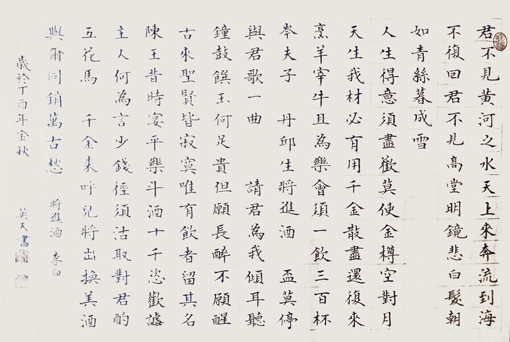 君不見黃河之水天上來奔流到海
不復回君不見高堂明鏡悲白髮朝
如青絲暮成雪
人生得意須盡歡莫使金樽空對月
天生我材必有用千金散盡還復來
烹羊宰牛且為樂會須一飲三百杯
岑夫子 丹邱生將進酒 盃莫停
與君歌一曲 請君為我傾耳聽
鐘鼓饌玉何足貴但願長醉不願醒
古來聖賢皆寂寞唯有飲者留其名
陳王昔時宴平樂斗酒十千恣歡謔
主人何為言少錢徑須沽取對君酌
五花馬 千金裘呼兒將出換美酒
與爾同銷萬古愁 將進酒 李白
歲於丁酉年金秋 英天書